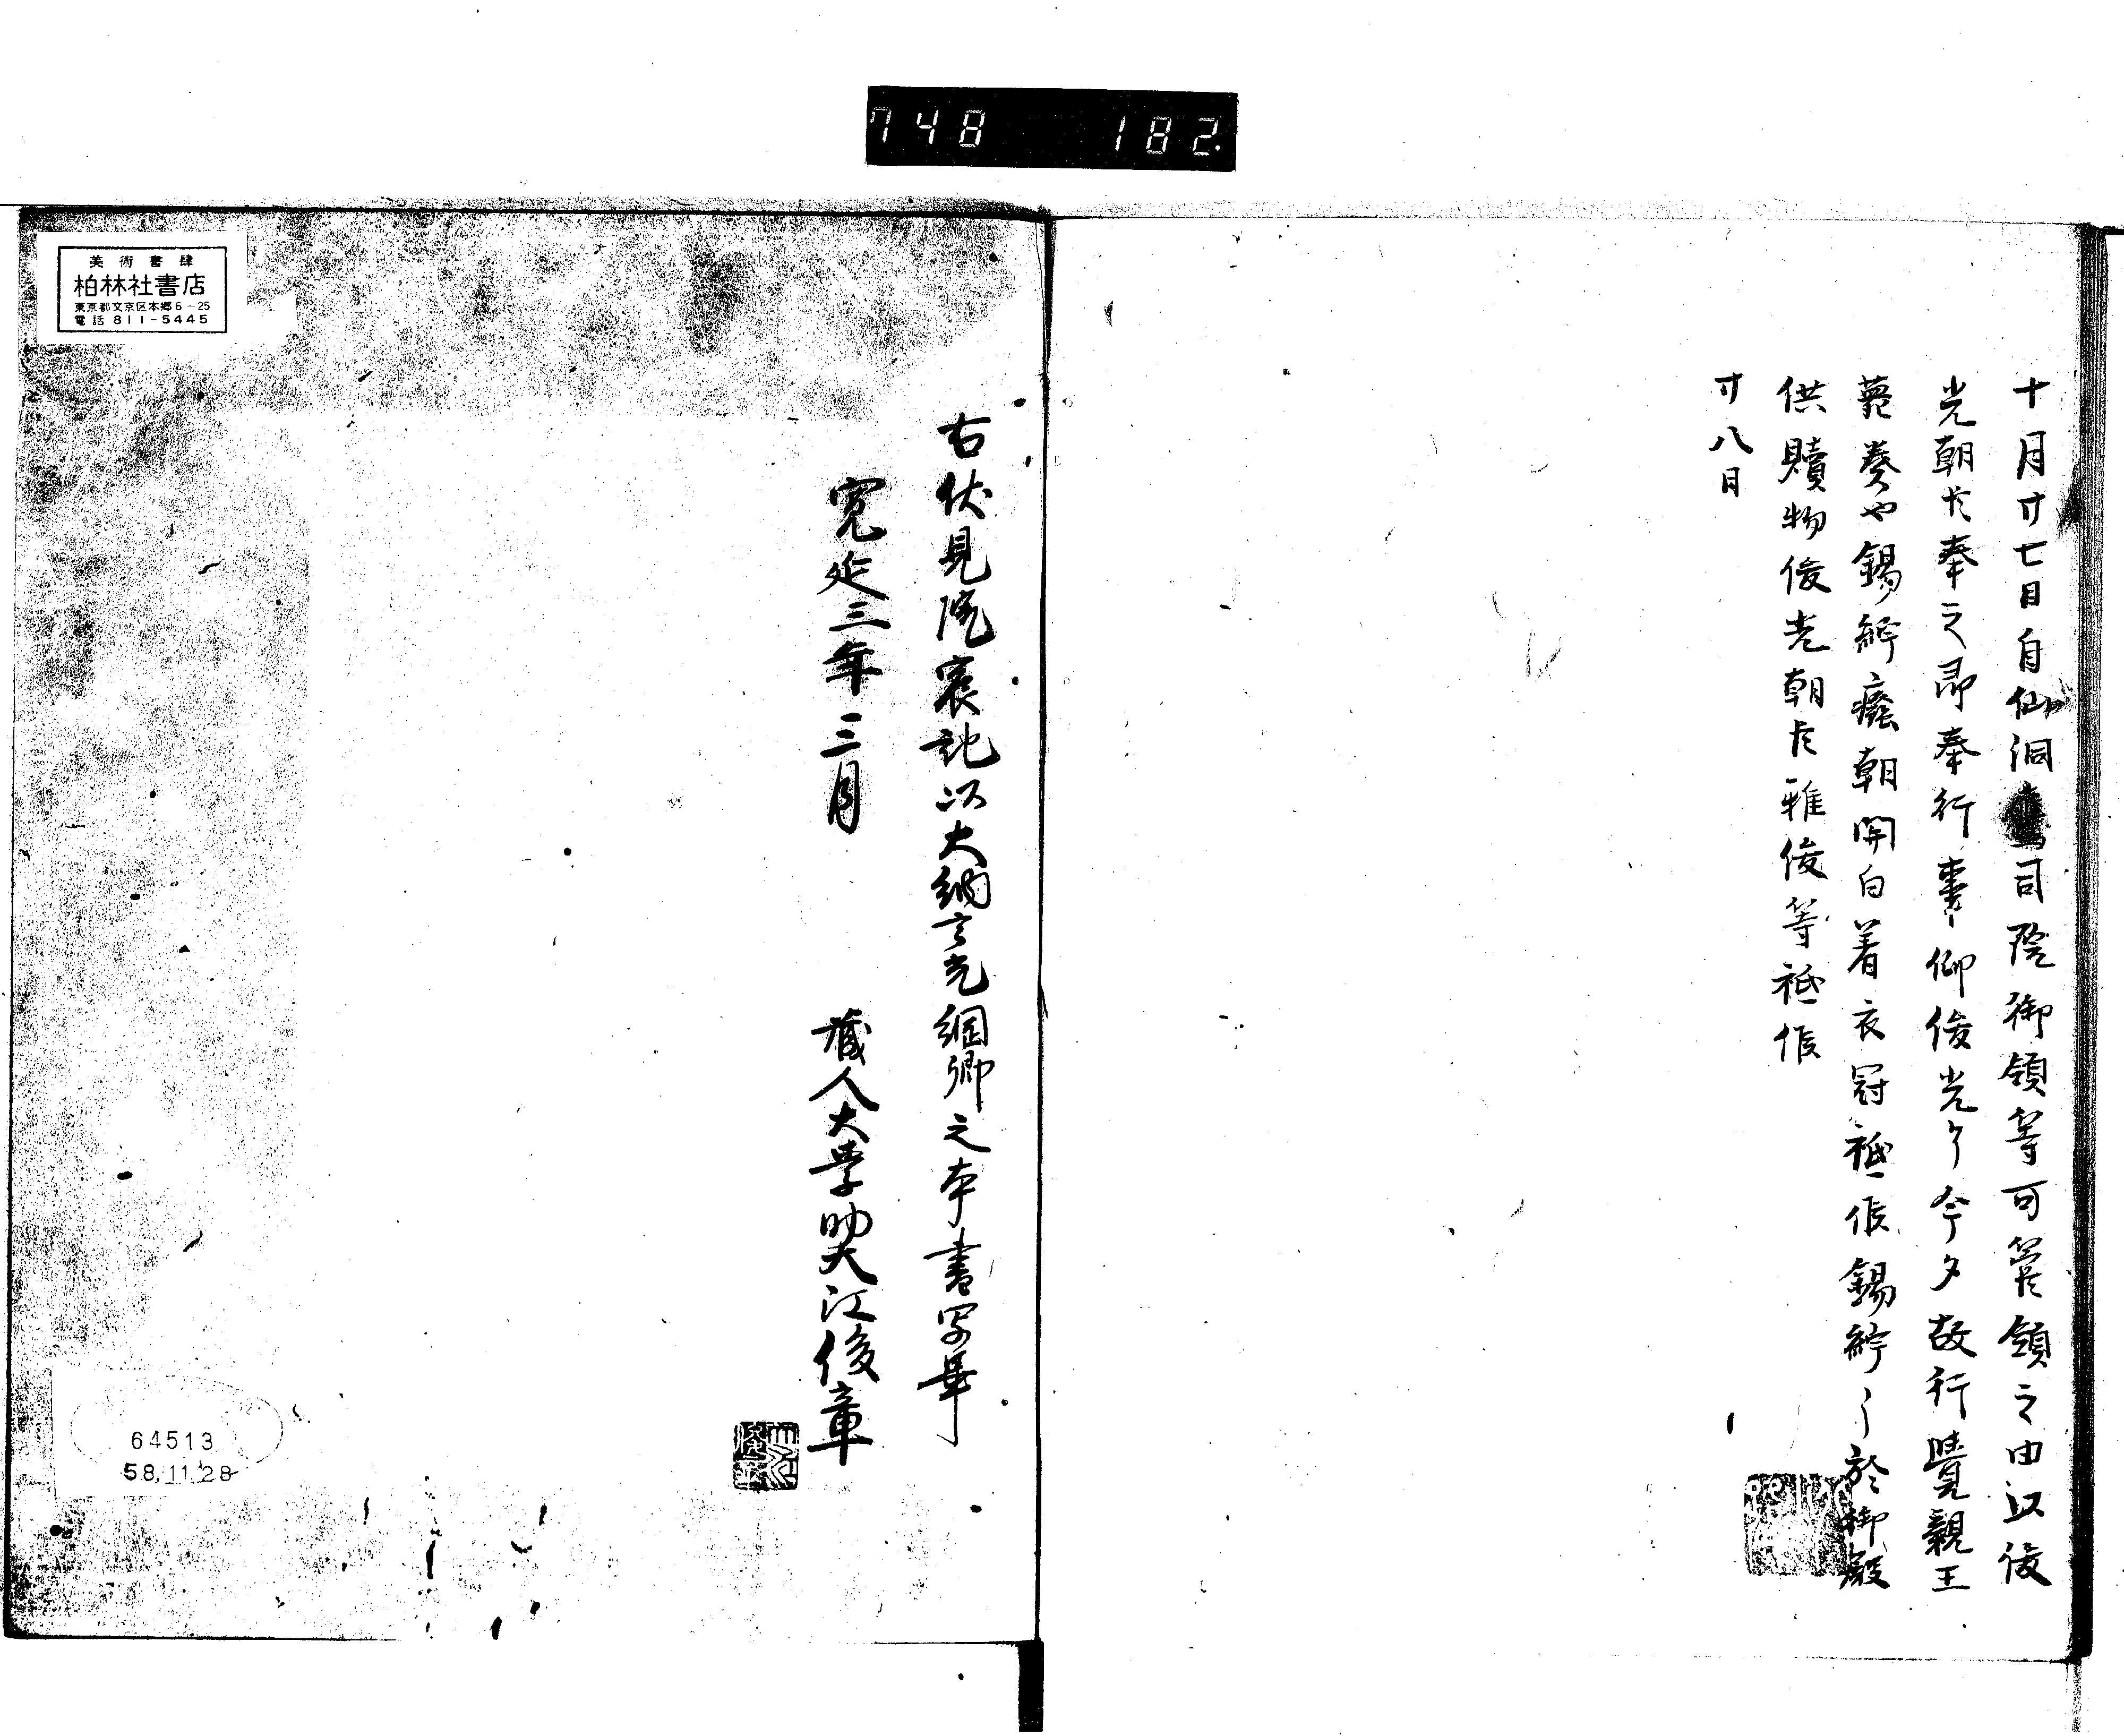 748 182
十月廿七日自仙洞鷹司院御領等可管領之由以俊
光朝臣奉之即奉行事仰俊光了今夕故行覺親王
薨奏也錫紵廢朝関白着衣冠祗候錫紵了於御殿
供贖物俊光朝臣雅俊等祗候
廿八日
右伏見院宸記以大納言光綱卿之本書写畢
寛延三年三月
蔵人大学助大江俊章
美術書肆
柏林社書店
東京都文京区本郷6-25
電話 811-5445
64513
58.11.28